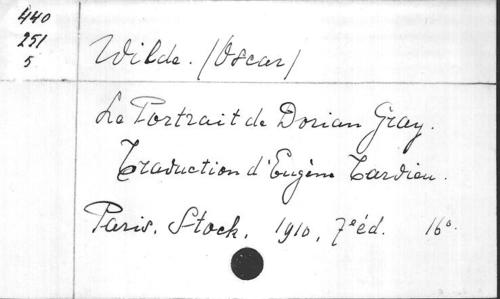 440
251
5
Wilde. (Oscar)
Le Portrait de Dorian Gray.
Traduction d'Eugène Tardieu.
Paris. Stock. 1910. 7e éd. 16º.